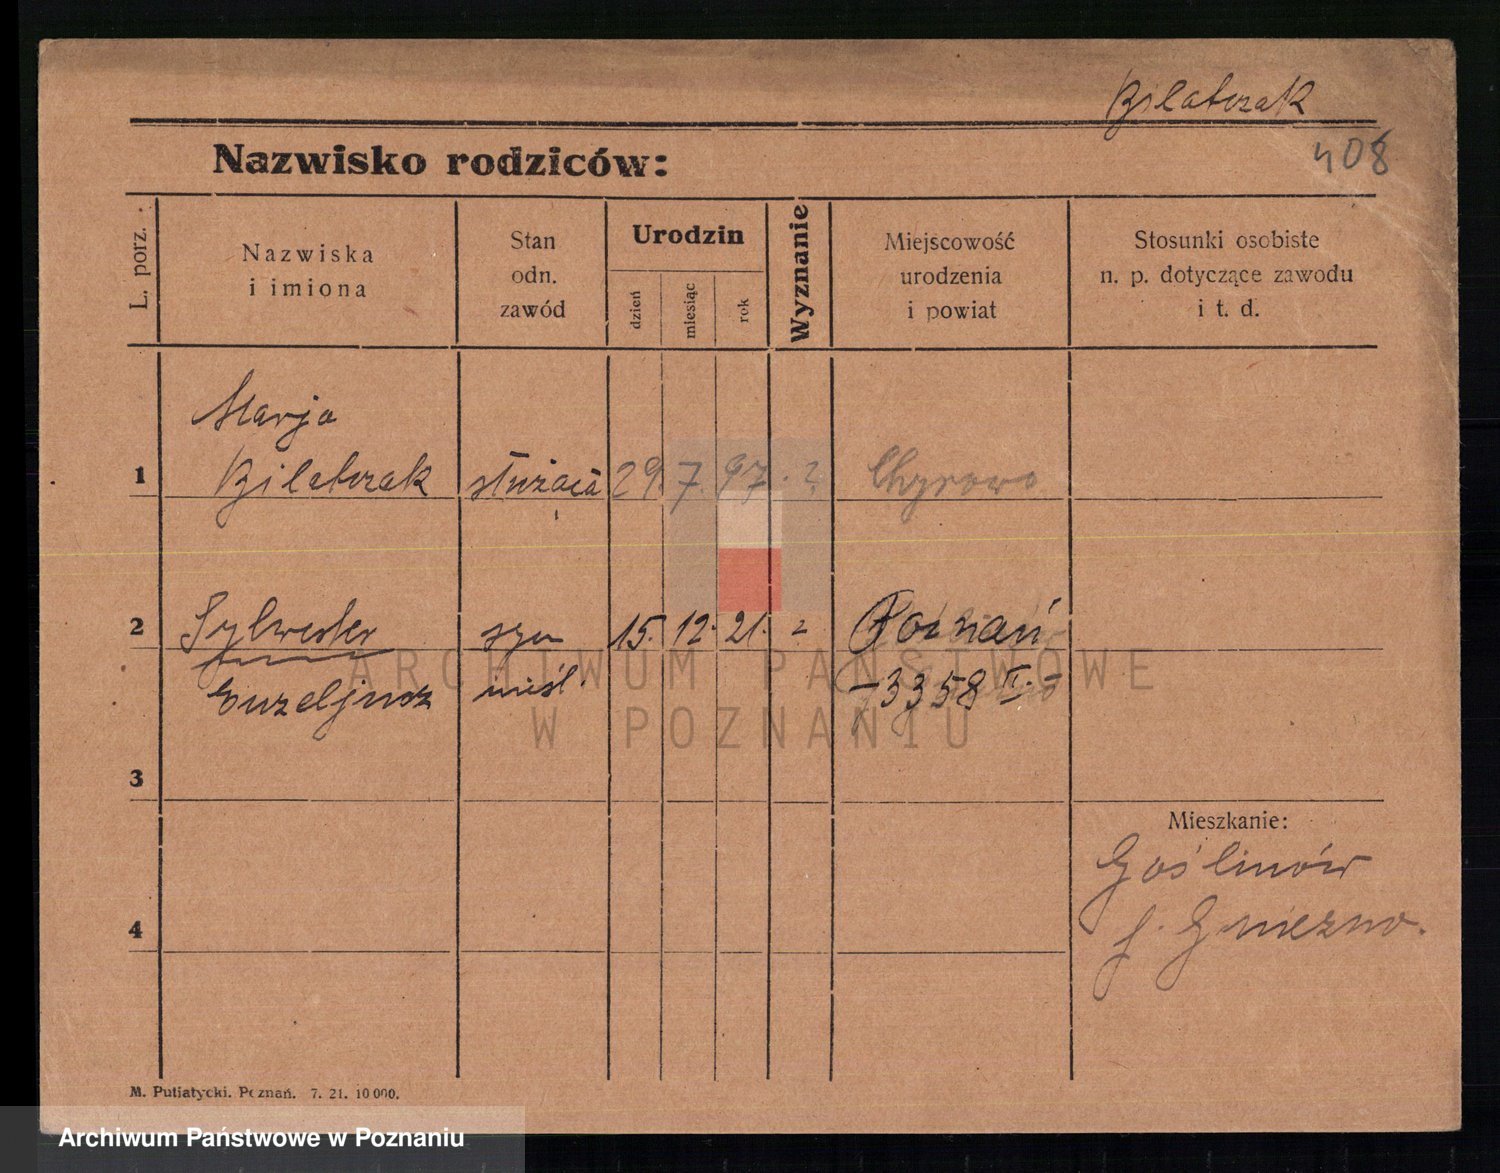 Bilatrzak
408
Nazwisko rodziców:
L. porz.
Nazwiska
i imiona
Stan
odn.
zawód
Urodzin
dzień
miesiąc
rok
Wyznanie
Miejscowość
urodzenia
i powiat
Stosunki osobiste
n. p. dotyczące zawodu
i t. d.
Marja
1 Bilatrzak służąca 29. 7. 97.
2 Sylwester syn 15. 12. 21. Poznań
nieśl. 3358
3
Mieszkanie:
Goślinów
p. Gniezno.
4
M. Putiatycki. Poznań. 7. 21. 10 000.
ARCHIWUM PAŃSTWOWE
W POZNANIU
Archiwum Państwowe w Poznaniu